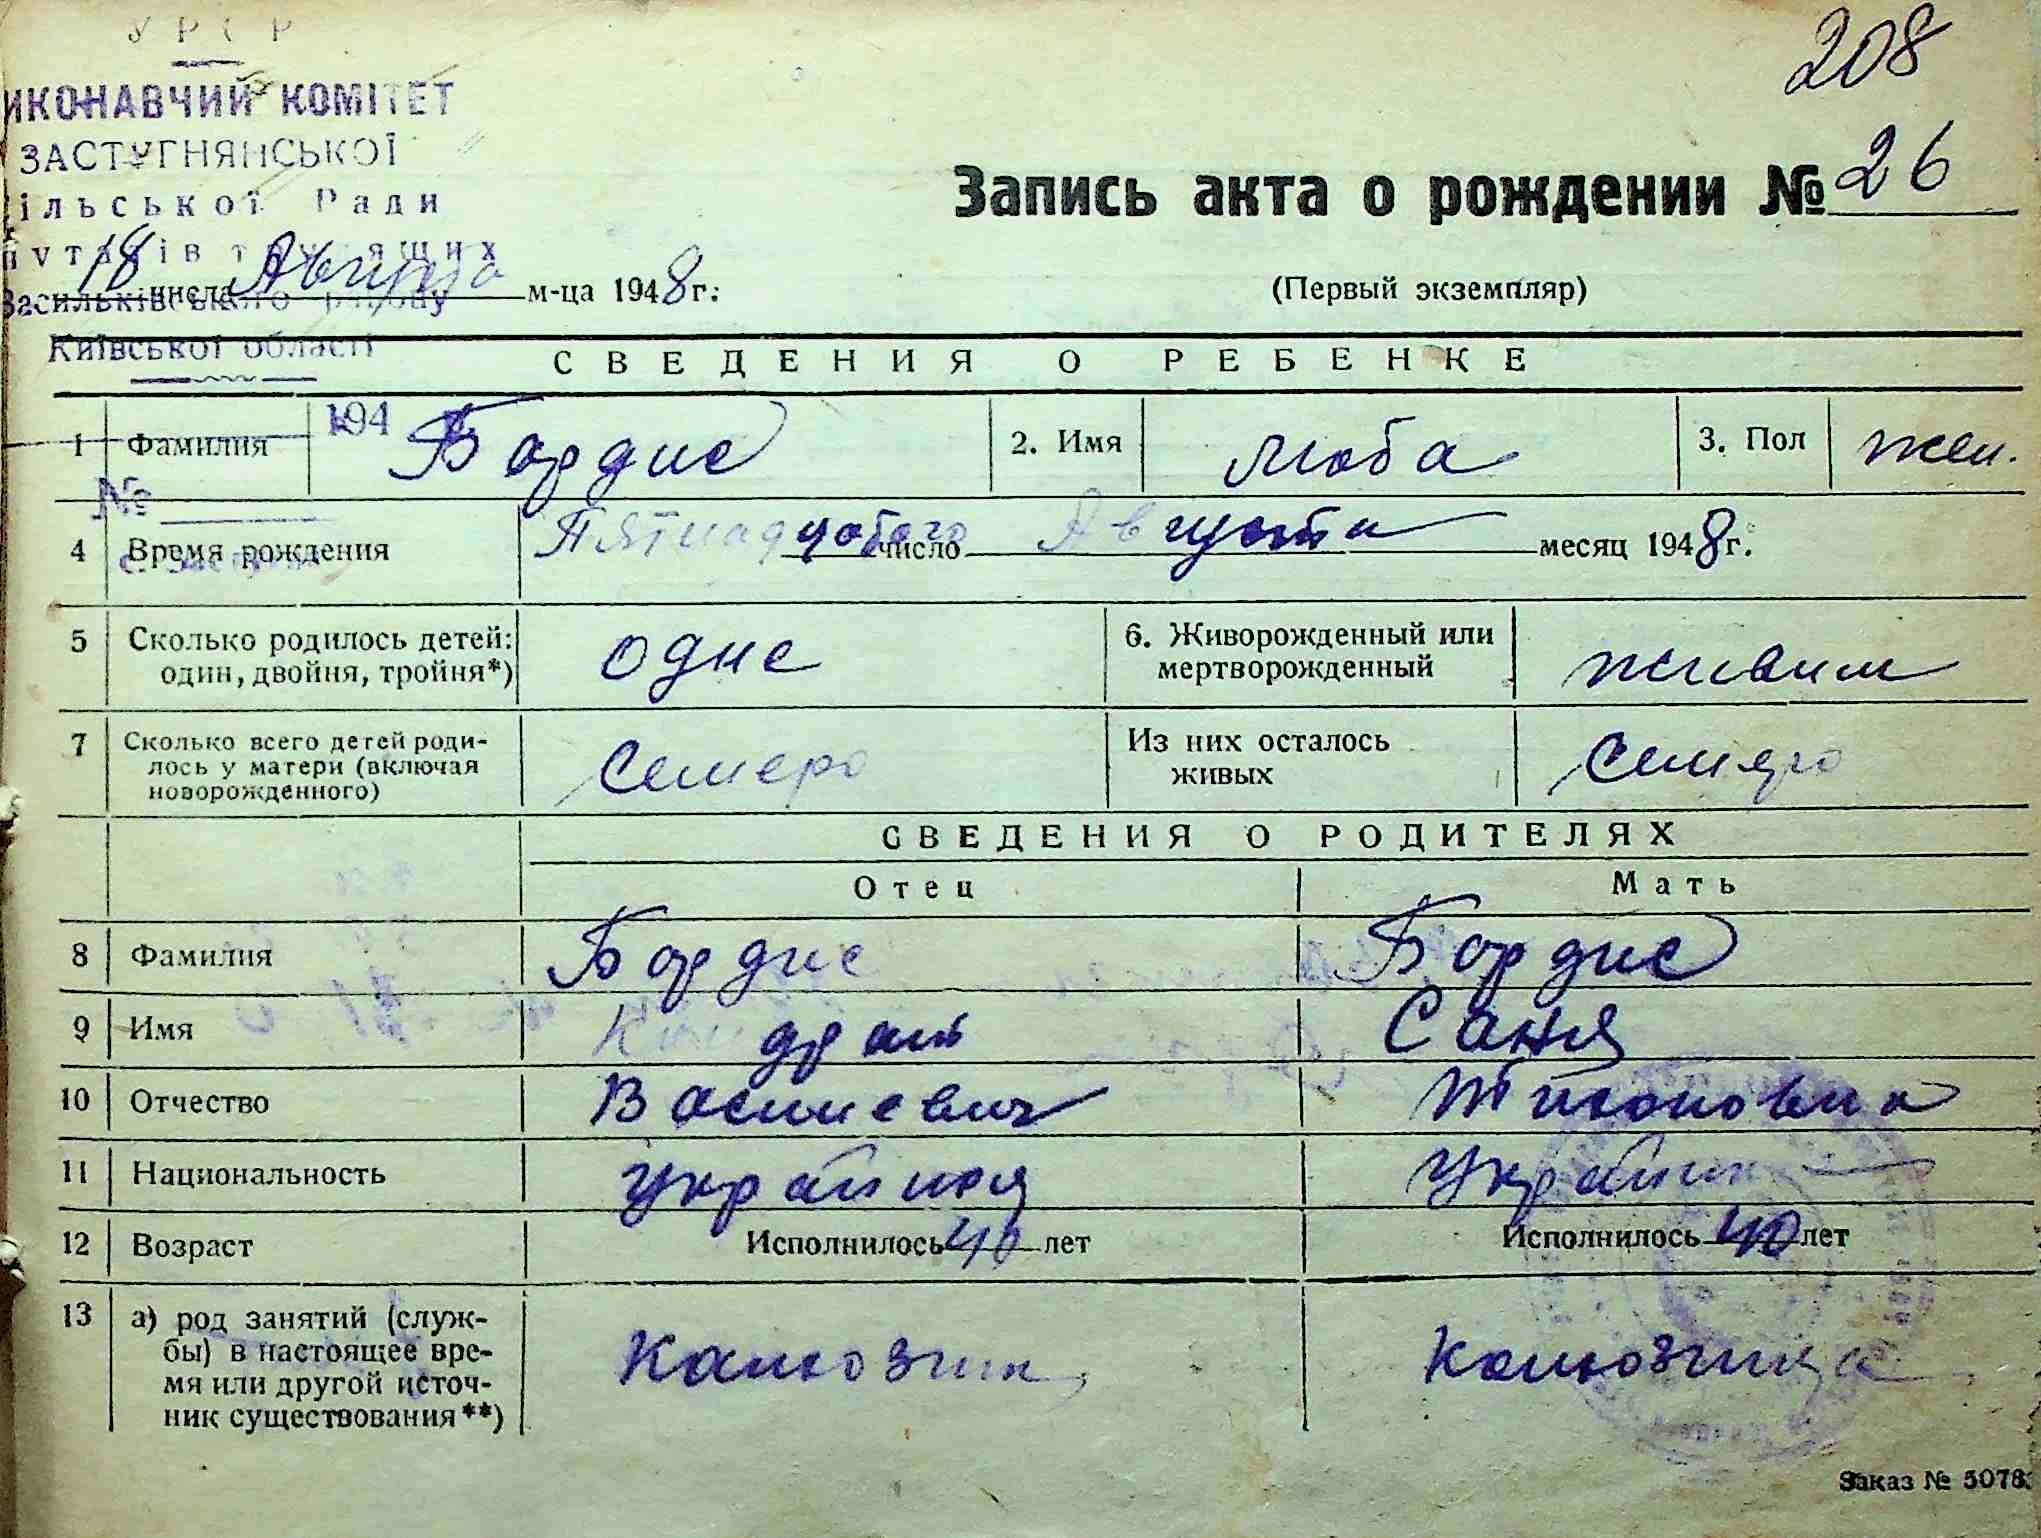 УРСР
208
ИКОНАВЧИЙ КОМІТЕТ
ЗАСТУГНЯНСЬКОЇ
ільської Ради
Запись акта о рождении № 26
18 числа Августа м-ца 1948 г.
(Первый экземпляр)
Васильківського району
Київської області
СВЕДЕНИЯ О РЕБЕНКЕ
194
1 Фамилия Бордис 2. Имя Люба 3. Пол жен.
№
4 Время рождения Пятнадцатого число Августа месяц 1948 г.
5 Сколько родилось детей: один, двойня, тройня*) одне 6. Живорожденный или мертворожденный живим
7 Сколько всего детей родилось у матери (включая новорожденного) Семеро Из них осталось живых Семяро
СВЕДЕНИЯ О РОДИТЕЛЯХ
Отец Мать
8 Фамилия Бордис Бордис
9 Имя Саня
10 Отчество Василевич Тихоновна
11 Национальность
12 Возраст Исполнилось 40 лет Исполнилось 40 лет
13 а) род занятий (служ-
бы) в настоящее вре-
мя или другой источ-
ник существования**)
Заказ № 5078.